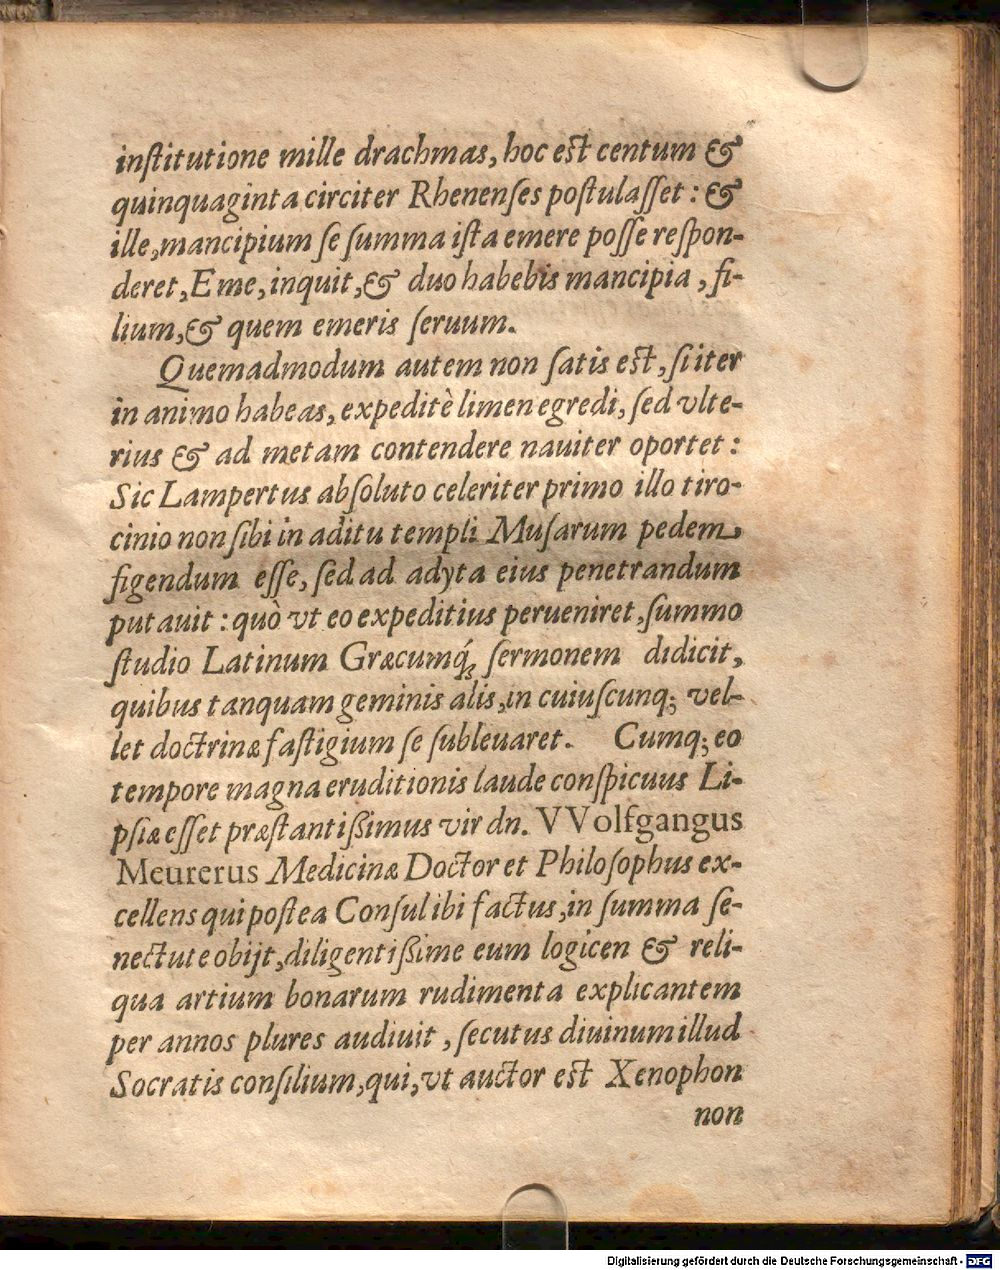 inſtitutione mille drachmas, hoc eſt centum &
quinquaginta circiter Rhenenſes poſtulaſſet: &
ille, mancipium ſe ſumma iſta emere poſſe reſpon-
deret, Eme, inquit, & duo habebis mancipia, fi-
lium, & quem emeris ſeruum.
Quemadmodum autem non ſatis eſt, ſi iter
in animo habeas, expeditè limen egredi, ſed vlte-
rius & ad metam contendere nauiter oportet:
Sic Lampertus abſoluto celeriter primo illo tiro-
cinio non ſibi in aditu templi Muſarum pedem
figendum eſſe, ſed ad adyta eius penetrandum
putauit: quò vt eo expeditius perueniret, ſummo
ſtudio Latinum Græcumq́; ſermonem didicit,
quibus tanquam geminis alis, in cuiuſcunq; vel-
let doctrinæ faſtigium ſe ſubleuaret. Cumq; eo
tempore magna eruditionis laude conſpicuus Li-
pſiæ eſſet præſtantißimus vir dn. VVolfgangus
Meurerus Medicinæ Doctor et Philoſophus ex-
cellens qui poſtea Conſul ibi factus, in ſumma ſe-
nectute obijt, diligentißime eum logicen & reli-
qua artium bonarum rudimenta explicantem
per annos plures audiuit, ſecutus diuinum illud
Socratis conſilium, qui, vt auctor eſt Xenophon
non
Digitalisierung gefördert durch die Deutsche Forschungsgemeinschaft - DFG